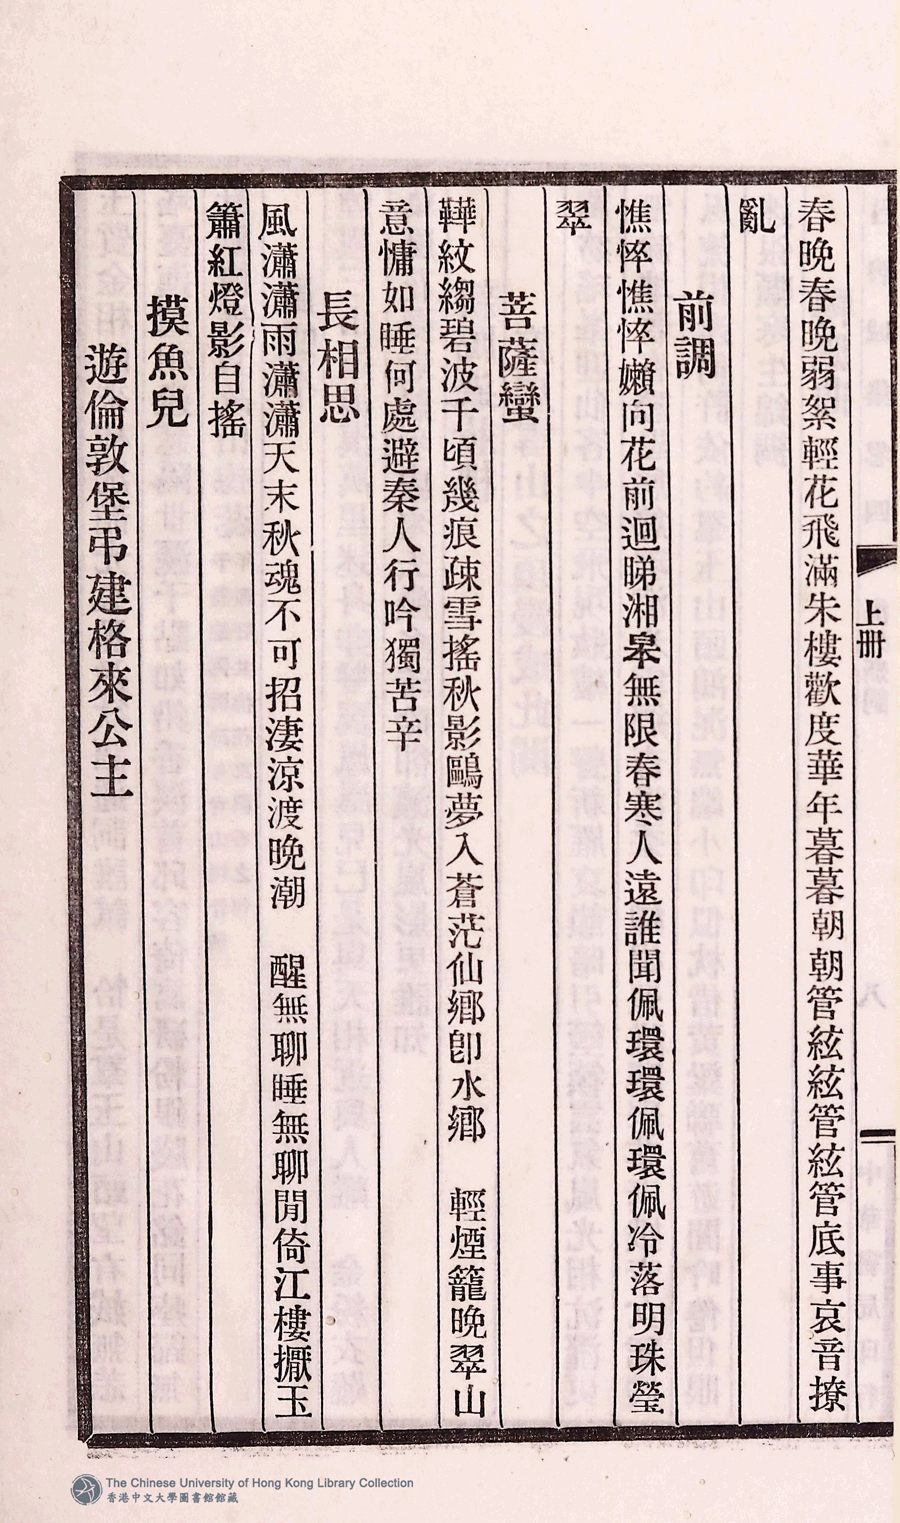 春晚春晚弱絮輕花飛滿朱樓歡度華年暮暮朝朝管絃絃管絃管底事哀音撩
亂
前調
憔悴憔悴嬾向花前迴睇湘皋無限春寒人遠誰聞佩環環佩環佩冷落明珠瑩
翠
菩薩蠻
鞾紋縐碧波千頃幾痕疎雪搖秋影鷗夢入蒼茫仙鄉卽水鄉　輕煙籠晚翠山
意慵如睡何處避秦人行吟獨苦辛
長相思
風瀟瀟雨瀟瀟天末秋魂不可招淒涼渡晚潮　醒無聊睡無聊閒倚江樓擫玉
簫紅燈影自搖
摸魚兒
遊倫敦堡弔建格來公主
上册
The Chinese University of Hong Kong Library Collection
香港中文大學圖書館館藏